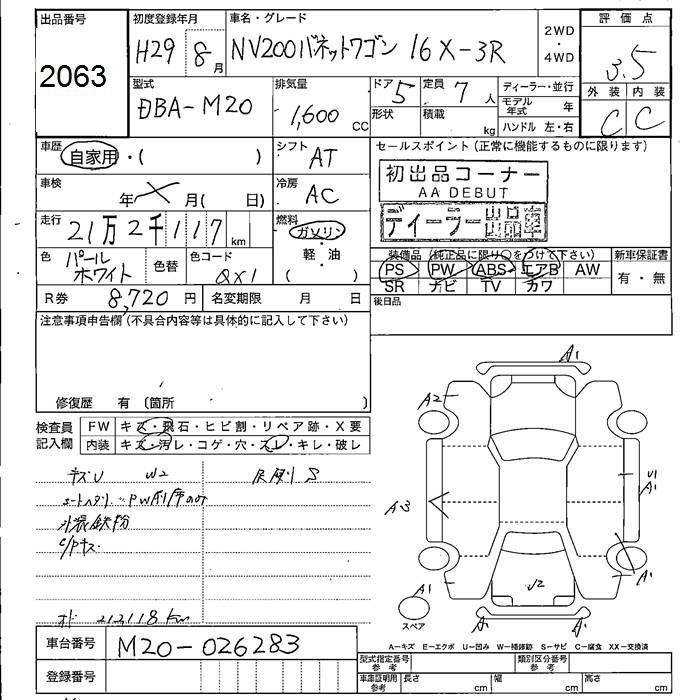 出品番号
2063
初度登録年月
H29 8月
車名・グレード
NV200バネットワゴン 16X-3R
2WD
・
4WD
評価点
3.5
外装 内装
C C
型式
DBA-M20
排気量
1,600 cc
ドア 5
形状
定員 7 人
積載 kg
ディーラー・並行
モデル年式 年
ハンドル 左・右
車歴
自家用・( )
シフト
AT
セールスポイント(正常に機能するものに限ります)
初出品コーナー
AA DEBUT
ディーラー出品車
車検
年 月( 日)
冷房
AC
走行
21万2千117km
燃料
ガソリン
軽・油
( )
色
パール
ホワイト
色替
色コード
QX1
装備品(純正品に限り○をつけて下さい)
PS PW ABS エアB AW
SR ナビ TV カワ
新車保証書
有・無
R券 8,720 円
名変期限 月 日
後日品
注意事項申告欄(不具合内容等は具体的に記入して下さい)
修復歴 有(箇所 )
検査員
記入欄
FW キズ・飛石・ヒビ割・リペア跡・X要
内装 キズ・汚レ・コゲ・穴・スレ・キレ・破レ
キズU W2
外装鉄粉
C/Pキズ
212,118km
A1
A2
A3
U1
A1
A1
A1
A1
スペア
A-キズ E-エクボ U-凹み W-補修跡 S-サビ C-腐食 XX-交換済
車台番号 M20-026283
登録番号
型式指定番号
参考
類別区分番号
参考
車庫証明用
参考
長さ cm
幅 cm
高さ cm